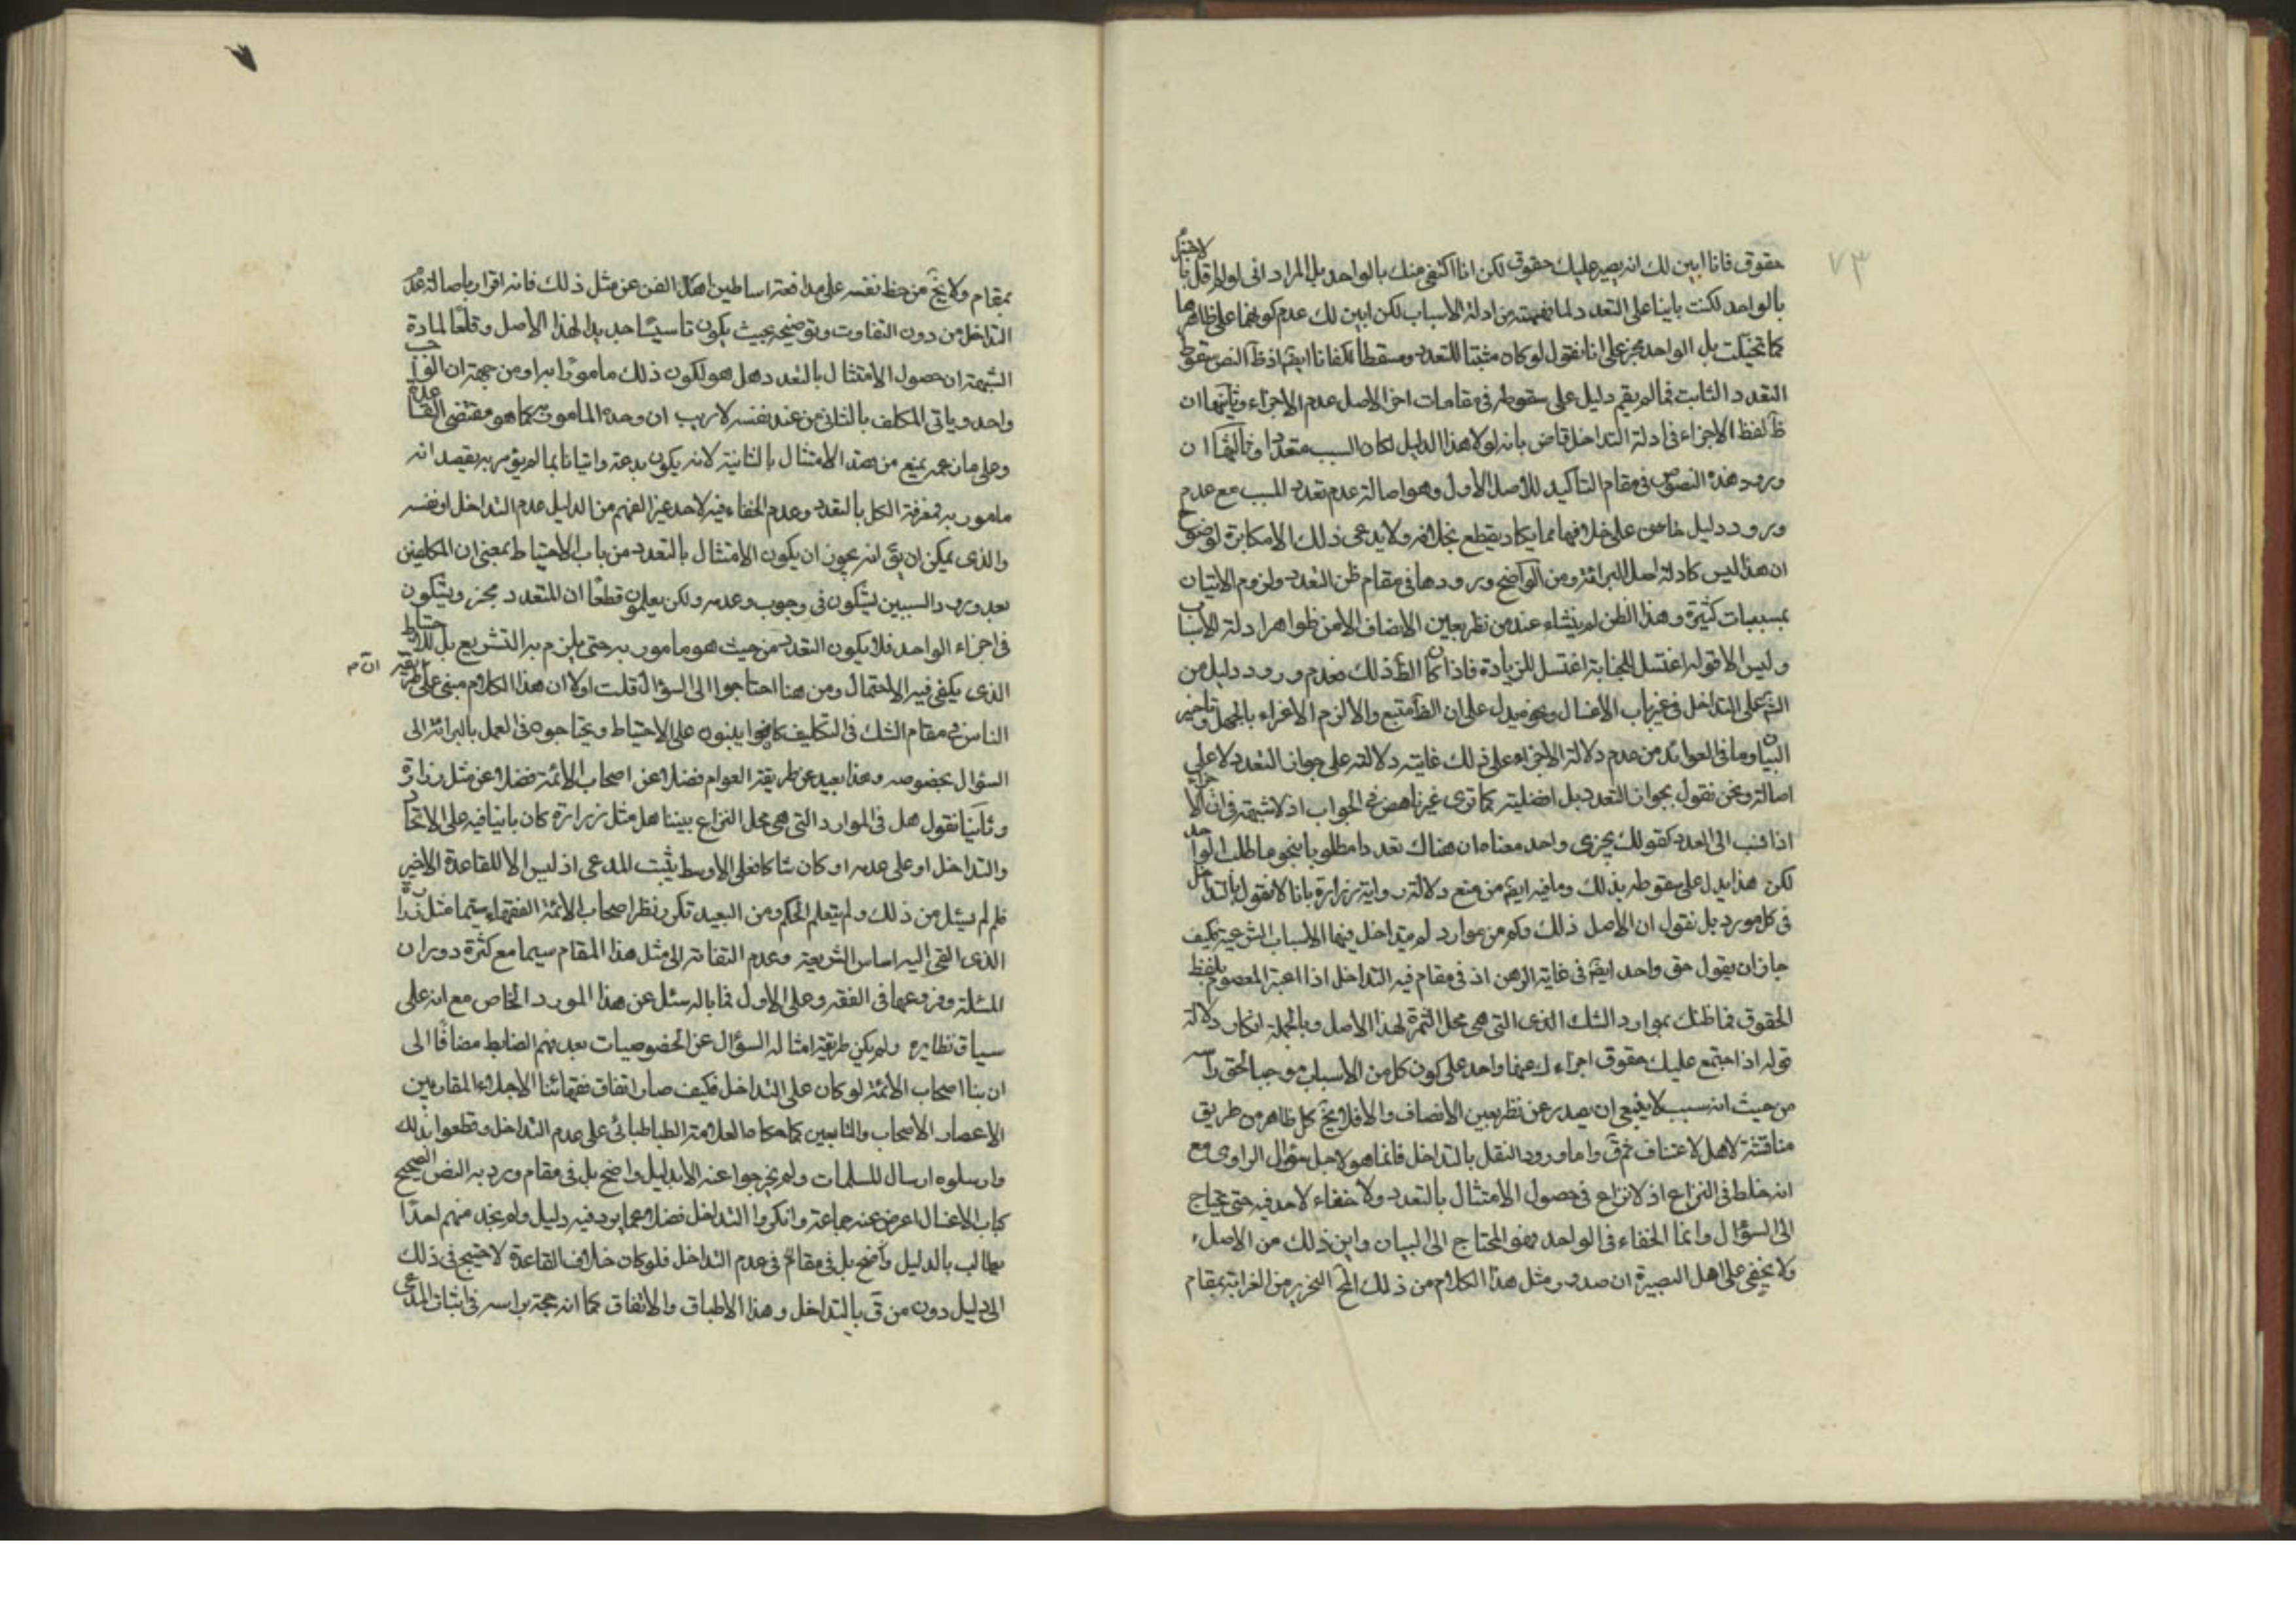 ٧٣
حقوق فانا ابين لك انه يصير عليك حقوق لكن انا اكتفى منك بالواحد بل المراد انى لو لم اقل بالاجتزاء
بالواحد لكنت بانيا على التعدد لما تفهمته من ادلة الاسباب لكن ابين لك عدم كونها على ظاهرها
كما تخيلت بل الواحد مجز على انا نقول لو كان مثبتا للتعدد ومسقطا لكفانا ايضم اذ ظ النص سقوط
التعدد الثابت فما لم يقم دليل على سقوطه فى مقامات اخر الاصل عدم الاجزاء وثانيها ان
ظ لفظ الاجزاء فى ادلة التداخل قاض بانه لولا هذا الدليل لكان السبب متعددا وثالثها ان
ورود هذه النصوص فى مقام التاكيد للاصل الاول وهو اصالة عدم تعدد المسبب مع عدم
ورود دليل خاص على خلافها مما يكاد يقطع بخلافه ولا يدعى ذلك الا مكابرة لوضوح
ان هذا ليس كادلة اصل البرائة ومن الواضح ورودها فى مقام ظن التعدد ولزوم الاتيان
بمسببات كثيرة وهذا الظن لم ينشاء عند من نظر بعين الانصاف الا من ظواهر ادلة الاسباب
وليس الا قوله اغتسل للجنابة اغتسل للزيادة فاذا كان الظ ذلك فعدم ورود دليل من
الشرع على التداخل فى غير باب الاغسال ونحوه يدل على ان الظ متبع والا لزم الاغراء بالجهل وتاخير
البيان وما فى العوائد من عدم دلالة الاجزاء على ذلك غايته دلالته على جواز التعدد لا على
اصالته ونحن نقول بجواز التعدد بل افضليته كما ترى غير ناهض فى الجواب اذ لا شبهة فى ان الاجزاء
اذا نسب الى العدد كقولك يجزى واحد معناه ان هناك تعددا مطلوبا ينحو ما طلب الواحد
لكن هذا يدل على سقوطه بذلك وما فيه ايضم من منع دلالة رواية زرارة بانا لا نقول بالتداخل
فى كل مورد بل نقول ان الاصل ذلك وكم من موارد لم يتداخل فيها الاسباب الشرعية فكيف
جاز ان يقول حق واحد ايضم فى غاية الوهن اذ فى مقام فيه التداخل اذا اعبر المعصوم بلفظ
الحقوق فما ظنك بموارد الشك الذى التى هى محل الثمرة لهذا الاصل وبالجملة انكار دلالة
قوله اذا اجتمع عليك حقوق اجزاء ك عنها واحد على كون كل من الاسباب موجبا لحق براسه
من حيث انه سبب لا ينبغى ان يصدر عن نظر بعين الانصاف والا فلا يخ كل ظاهر من طريق
مناقشة لاهل الاعتساف ثم ق واما ورود النقل بالتداخل فانما هو لاجل سؤال الراوى مع
انه خلط فى النزاع اذ لا نزاع فى حصول الامتثال بالتعدد ولا خفاء لاحد فيه حتى يحتاج
الى السؤال وانما الخفاء فى الواحد فهو المحتاج الى البيان واين ذلك من الاصل،
ولا يخفى على اهل البصيرة ان صدور مثل هذا الكلام من ذلك الحبر النحرير من الغرابة بمقام
بمقام ولا يخ من حظ نفسه على مدافعة اساطين اهل الفن عن مثل ذلك فانه اقرار باصالة عدم
التداخل من دون التفاوت وتوضيحه بحيث يكون تاسيسًا جديدا لهذا الاصل وقلعًا لمادة
الشبهة ان حصول الامتثال بالتعدد هل هو لكون ذلك مامورًا به او من جهة ان الواجب
واحد وياتى المكلف بالثانى من عند نفسه لا ريب ان وحدة المامور به كما هو مقتضى القاعدة
وعلى ما زعمه يمنع من هذا الامتثال بالثانية لانه يكون بدعة واتيانا بما لم يؤمر به بقصد انه
مامور به فمعرفة الكل بالتعدد وعدم الخفاء فيه لاحد عين الفهم من الدليل عدم التداخل او نفسه
والذى يمكن ان يق انه يجوز ان يكون الامتثال بالتعدد من باب الاحتياط بمعنى ان المكلفين
بعد ورود السببين يشكون فى وجوب وعدمه ولكن يعلمون قطعًا ان المتعدد مجز ويشكون
فى اجزاء الواحد فلا يكون التعدد من حيث هو مامور به حتى يلزم به التشريع بل للاحتياط
الذى يكفى فيه الاحتمال ومن هنا احتاجوا الى السؤال قلت اولا ان هذا الكلام مبنى على طريقة
ان م
الناس فى مقام الشك فى التكليف كانوا يبنون على الاحتياط ويحتاجون فى العمل بالبرائة الى
السؤال بخصوصه وهذا بعيد عن طريقة العوام فضلا عن اصحاب الائمة فضلا عن مثل زرارة
وثانيًا نقول هل فى الموارد التى هى محل النزاع بيننا هل مثل زرارة كان بانيا فيه على الاتحاد
والتداخل او على عدمه او كان شاكا فعلى الاوسط يثبت المدعى اذ ليس الا للقاعدة الاخير
فلم لم يسئل من ذلك ولم يتعلم الحكم ومن البعيد تكرر نظر اصحاب الائمة الفقهاء سيما مثل زرارة
الذى القى اليه اساس الشريعة وعدم التفاته الى مثل هذا المقام سيما مع كثرة دوران
المسئلة وفروعها فى الفقه وعلى الاول فما باله سئل عن هذا المورد الخاص مع انه على
سياق نظايره ولم يكن طريقة امثاله السؤال عن الخصوصيات بعد فهم الضابط مضافًا الى
ان بنا اصحاب الائمة لو كان على التداخل فكيف صار اتفاق فقهائنا الاجلاء المقاربين
الاعصار الاصحاب والتابعين كما حكاه العلامة الطباطبائى على عدم التداخل وقطعوا بذلك
وارسلوه ارسال المسلمات ولم يخرجوا عنه الا بدليل واضح بل فى مقام ورد به النص الصحيح
كباب الاغسال اعرض عنه جماعة وانكروا التداخل فضلا عما يرد فيه دليل ولم نجد منهم احدًا
يطالب بالدليل واضح بل فى مقام فى عدم التداخل فلو كان خلاف القاعدة لاحتيج فى ذلك
الى دليل دون من ق بالتداخل وهذا الاطباق والاتفاق كما انه حجة براسه فى اثبات المدعى